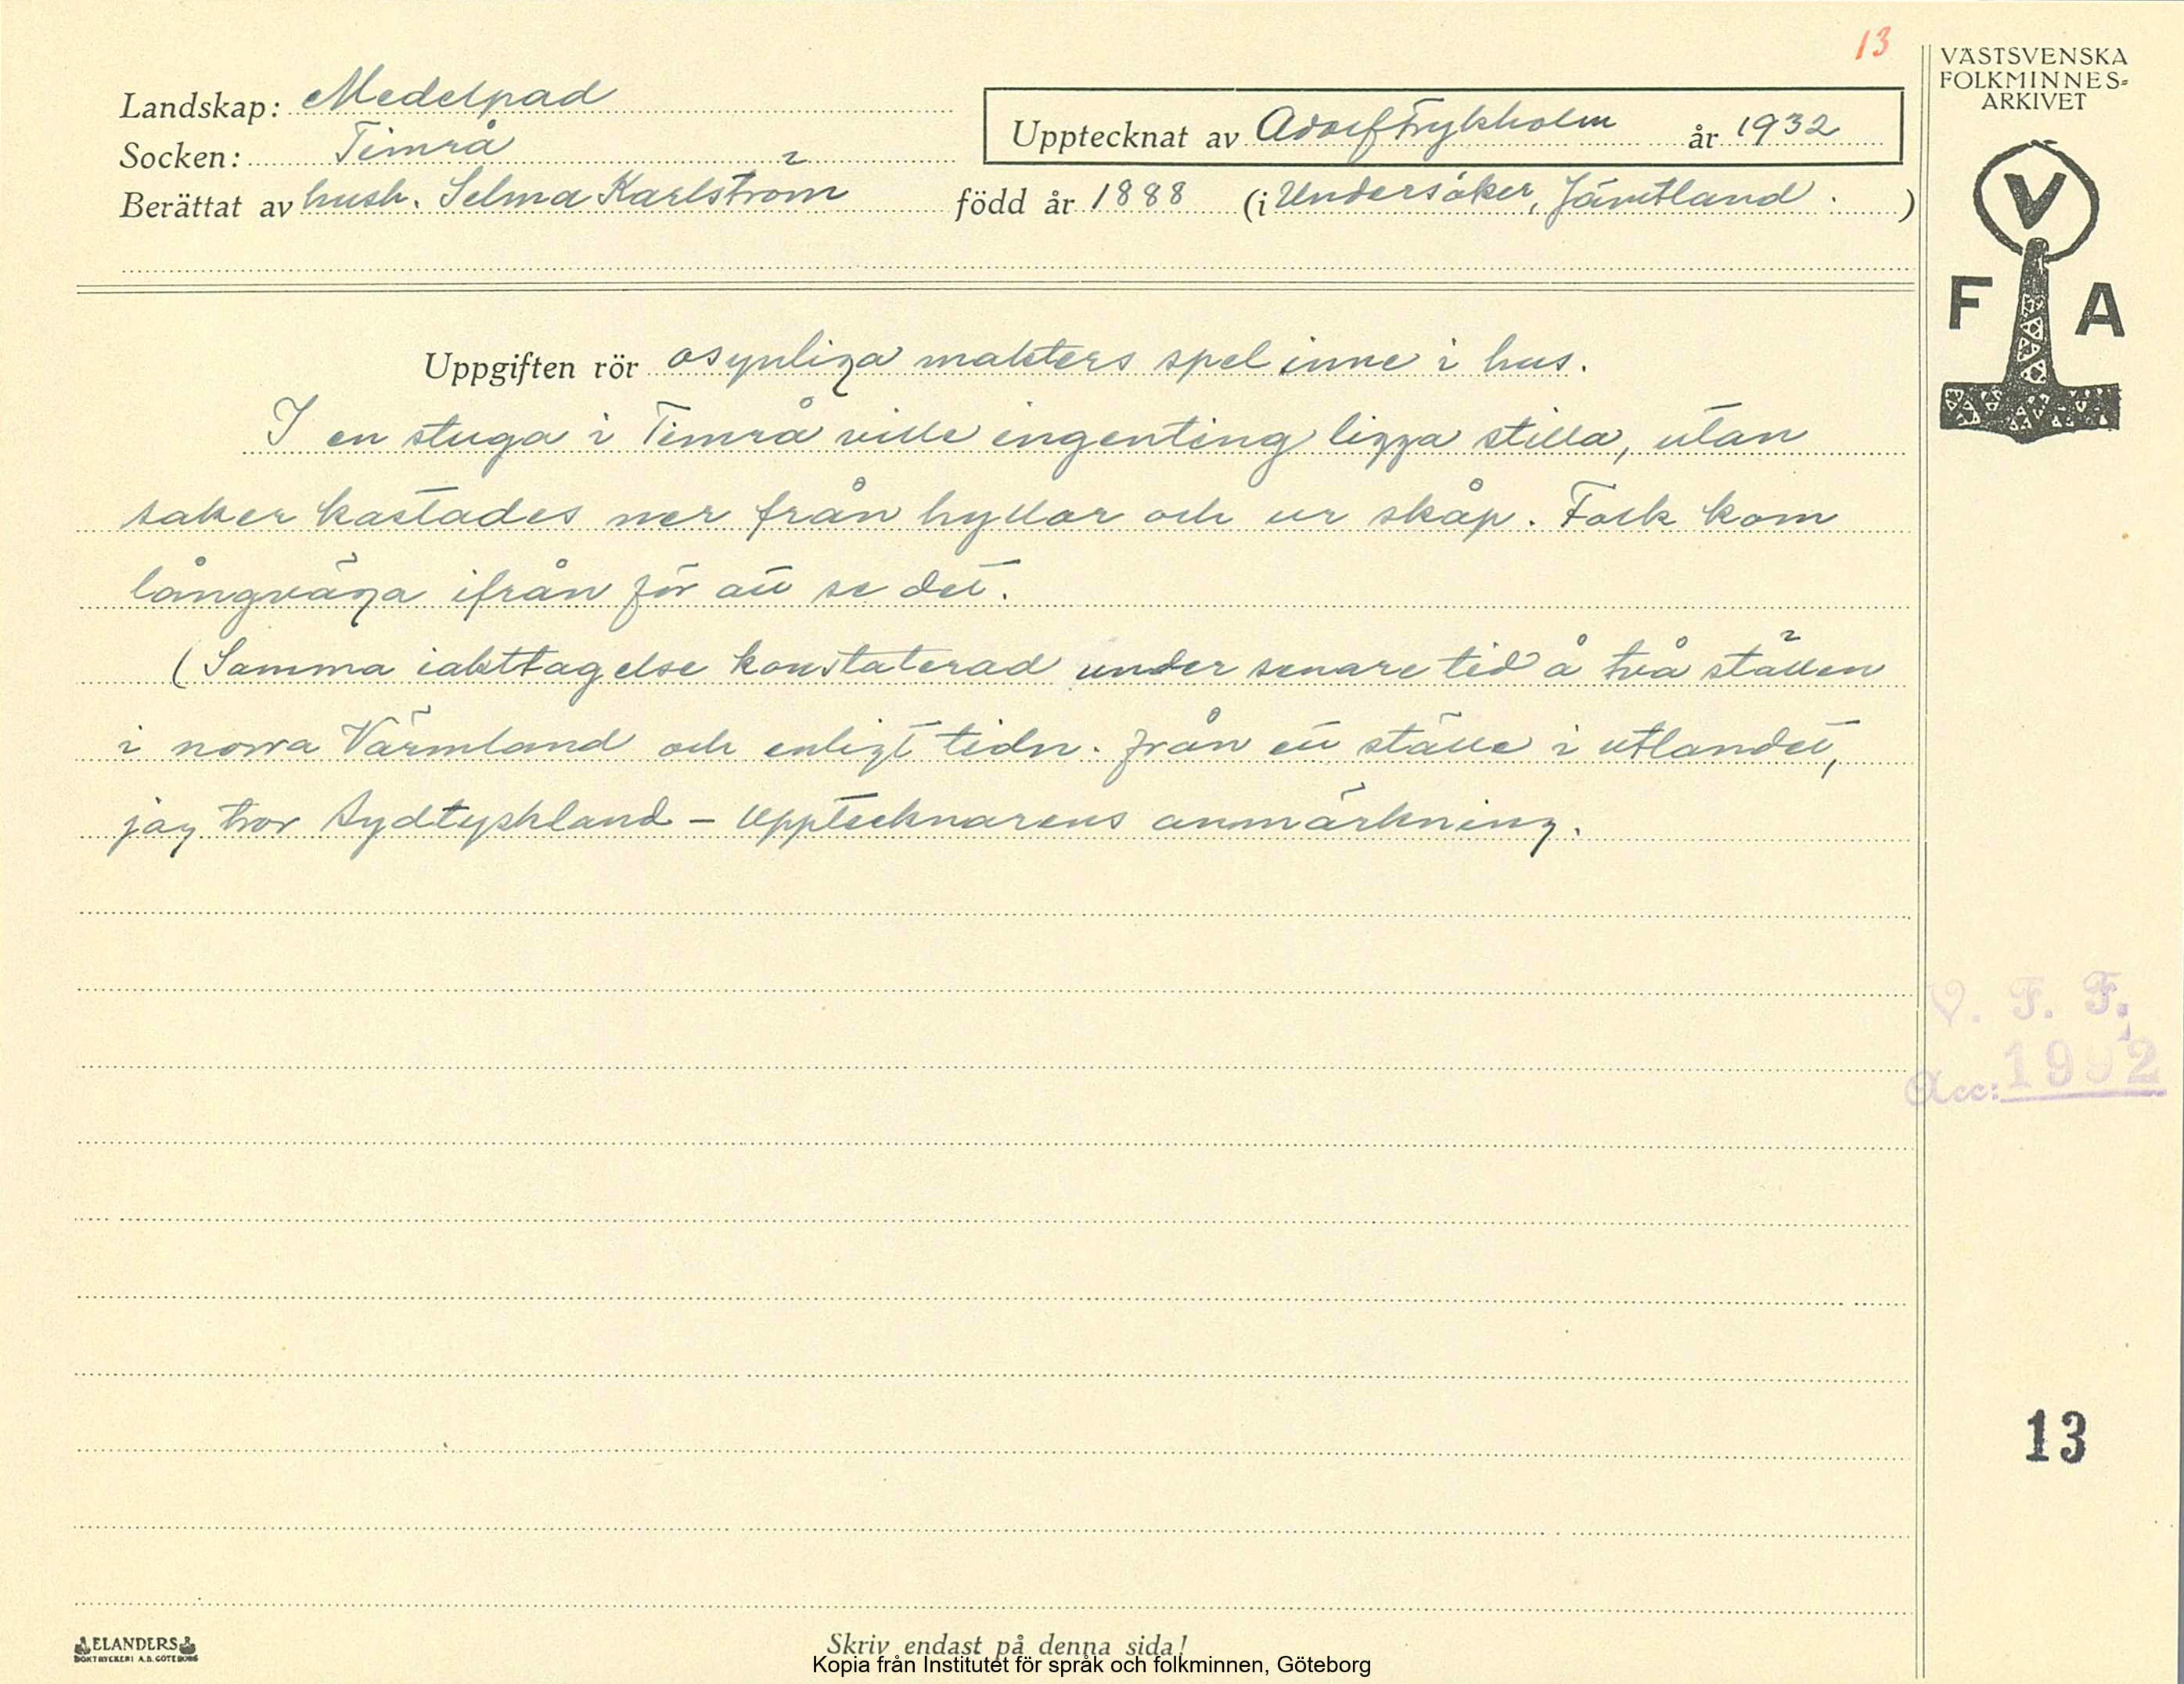 13
VÄSTSVENSKA
FOLKMINNES-
ARKIVET
Landskap: Medelpad
Upptecknat av Adolf Frykholm år 1932
Socken: Timrå
Berättat av hush. Selma Karlström född år 1888 (i Undersåker, Jämtland.)
V
F A
Uppgiften rör osynliga makters spel inne i hus.
I en stuga i Timrå ville ingenting ligga stilla, utan
saker kastades ner från hyllor och ur skåp. Folk kom
långväga ifrån för att se det.
(Samma iakttagelse konstaterad under senare tid å två ställen
i norra Värmland och enligt tidn. från ett ställe i utlandet,
jag tror Sydtyskland – Upptecknarens anmärkning.
V. F. F.
Acc: 1992
13
ELANDERS
BOKTRYCKERI A.B. GÖTEBORG
Skriv endast på denna sida!
Kopia från Institutet för språk och folkminnen, Göteborg